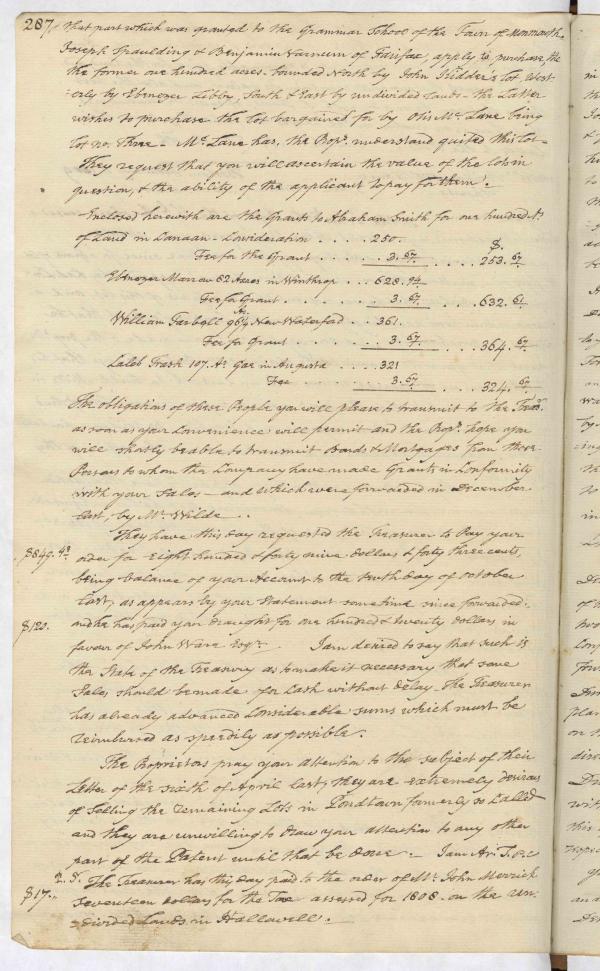 287
that part which was granted to the Grammar School of the Town of Monmouth.
Joseph Spaulding & Benjamin Varnum of Fairfax, apply to purchase, the
the former one hundred acres bounded North by John Kidder's Lot, West
-erly by Ebenezer Libby, South & East by undivided Lands - the Latter
wishes to purchase the Lot bargained for by Otis McLane being
Lot no. Three - McLane has, the Propr. understand quited this Lot -
They request that you will ascertain the value of the lots in
question, & the ability of the applicant to pay for them.
Inclosed herewith are the Grants to Abraham Smith for one hundred As
of Land in Canaan - Consideration . . . . 250.
$.
Fee for the Grant . . . . 3.67 . . . 253.67
Ebenezer Marrow 82 Acres in Winthrop . . . 628.94
Fee for Grant . . . . . 3.67 . . . 632.61
William Tarbell 96¼ As. New Waterford . . 361.
Fee for Grant . . . . . 3.67 . . . 364.67
Caleb Trask 107. As Gar in Augusta . . . . 321
Fee . . . . . 3.67 . . . 324.67
The obligations of these People you will please to transmit to the Treasr.
as soon as your Convenience will permit and the Propr. hope you
will shortly be able to transmit Bonds & Mortgages from those
Persons to whom the Company have made Grants in Conformity
with your Sales - and which were forwarded in December
last, by Mr. Wilde . .
They have this day requested the Treasurer to Pay your
$849.43
order for Eight hundred & forty nine dollars & forty three cents,
being balance of your Account to the tenth day of October
last, as appears by your Statement sometime since forwarded.
$120.
and he has paid your draught for one hundred & twenty dollars in
favour of John Ware Esqr. I am desired to say that such is
the State of the Treasury as to make it necessary that some
Sales should be made for Cash without delay. The Treasurer
has already advanced Considerable sums which must be
reimbursed as speedily as possible.
The Proprietors pray your attention to the subject of their
Letter of the sixth of April last, they are extremely desirous
of Selling the remaining Lots in Pondtown formerly so Called
and they are unwilling to draw your attention to any other
part of the Patent until that be done. - I am Ar. T. P. C
P. S. The Treasurer has this day paid to the order of Mr. John Merrick
$17..
Seventeen dollars for the Tax assessed for 1808. on the un-
-divided Lands in Hallowell.